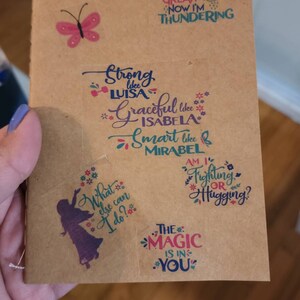 NOW I'M
THUNDERING
Strong
like
LUISA
Graceful like
ISABELA
Smart like
MIRABEL
AM I
Fighting
OR
Hugging?
What
else can
I do?
THE
MAGIC
IS IN
YOU